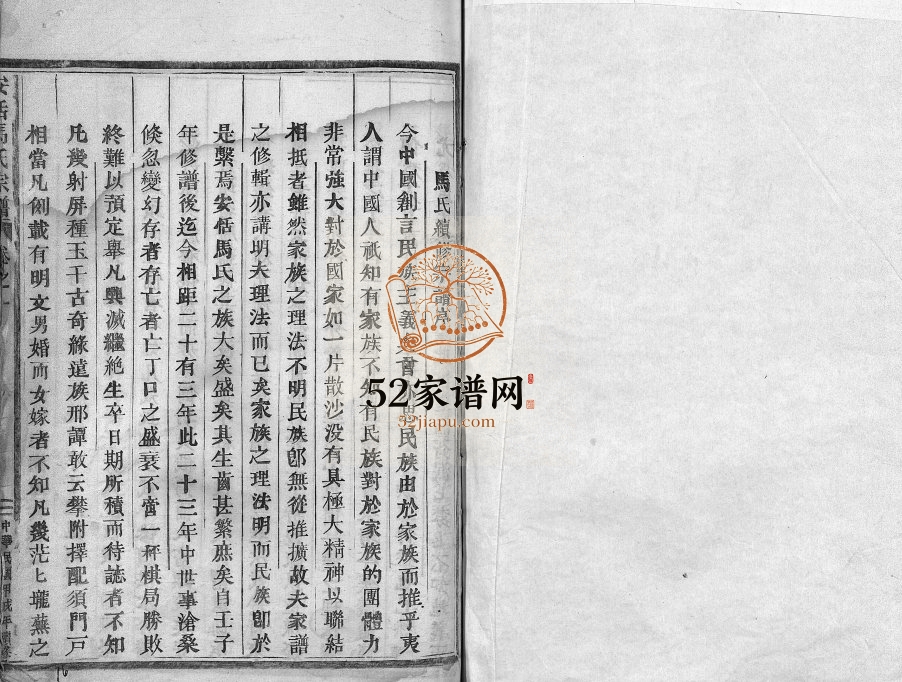 馬氏續修宗譜序
今中國創言民族主義民族由於家族而推乎夷
人謂中國人祇知有家族不知有民族對於家族的團體力
非常強大對於國家如一片散沙没有具極大精神以聯結
相抵者雖然家族之理法不明民族卽無從推擴故夫家譜
之修輯亦講明夫理法而已矣家族之理法明而民族卽於
是繫焉安恬馬氏之族大矣盛矣其生齒甚繁庶矣自壬子
年修譜後迄今相距二十有三年此二十三年中世事滄桑
倏忽變幻存者存亡者亡丁口之盛衰不啻一枰棋局勝敗
終難以預定舉凡興滅繼絶生卒日期所積而待誌者不知
凡幾射屏種玉千古奇緣遠族邢譚敢云攀附擇配須門戸
相當凡劍戠有明文男婚而女嫁者不知凡幾茫匕瓏蕪之
安恬馬氏宗譜
卷之一
中華民國甲戌年續修
52家谱网
52jiapu.com